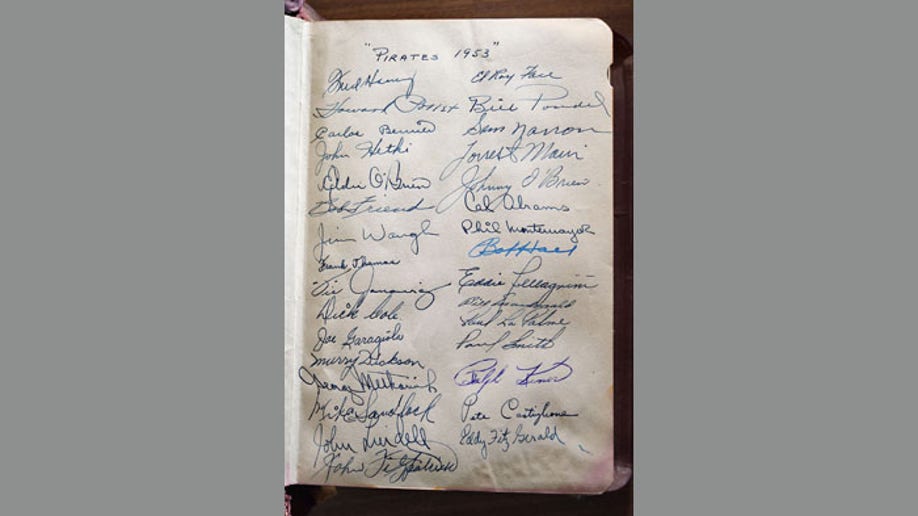 "PIRATES 1953"
Fred Haney
Howard Pollet
Carlos Bernier
John Hetki
Eddie O'Brien
Bob Friend
Jim Waugh
Frank Thomas
Vic Janowicz
Dick Cole
Joe Garagiola
Murry Dickson
George Metkovich
Mike Sandlock
John Lindell
John Fitzpatrick
El Roy Face
Bill Posedel
Sam Narron
Forrest Main
Johnny O'Brien
Cal Abrams
Phil Montemayor
Bob Hall
Eddie Pellagrini
Paul La Palme
Paul Smith
Ralph Kiner
Pete Castiglione
Eddy Fitz Gerald